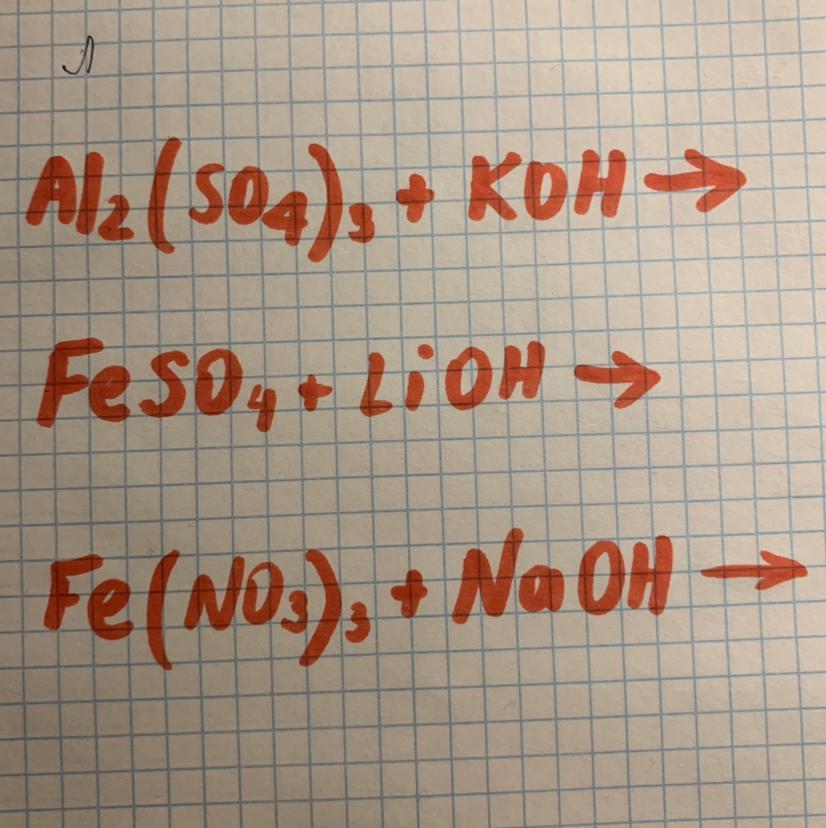 Al₂(SO₄)₃ + KOH →
FeSO₄ + LiOH →
Fe(NO₃)₃ + NaOH →